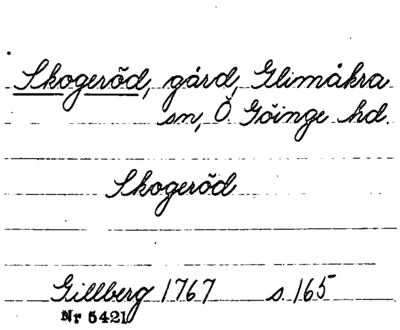 Skogeröd, gård, Glimåkra
sn, Ö. Göinge hd.
Skogeröd
Gillberg 1767 s. 165
Nr 5421